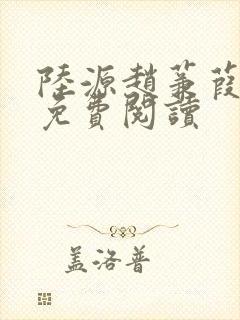 陸源趙蒹葭
免費閱讀
盖洛普